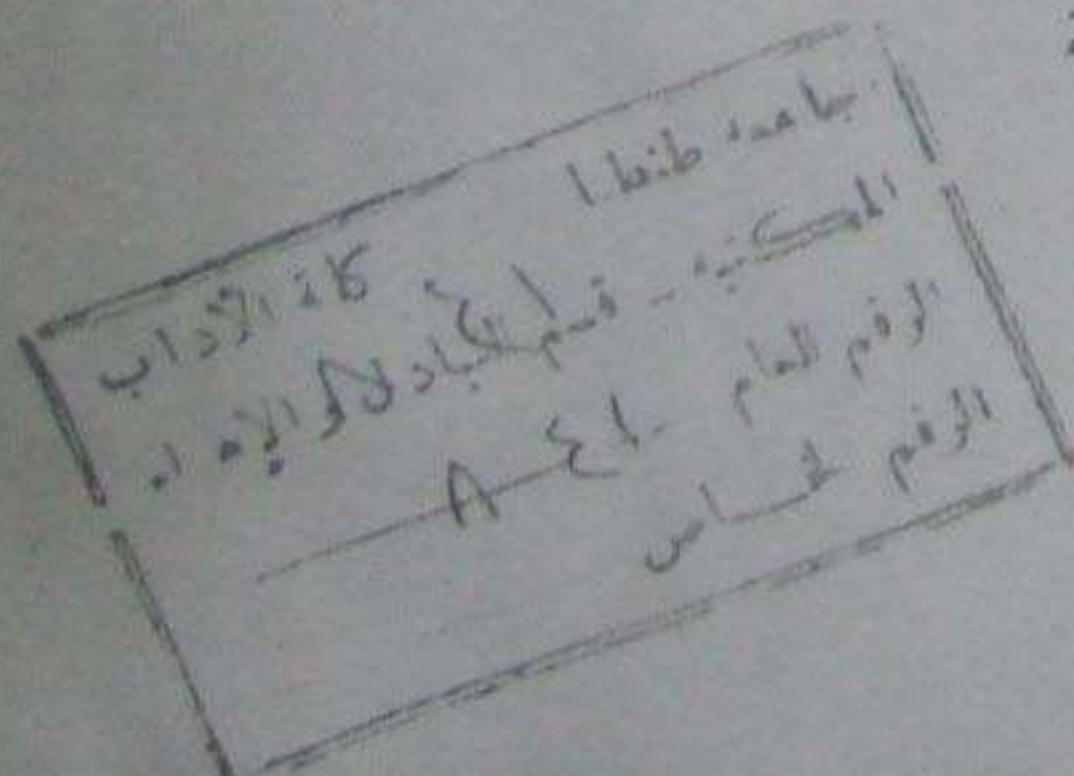 جامعة طنطا كلية الآداب
المكتبة - قسم التبادل والإهداء
الرقم العام
الرقم الخاص